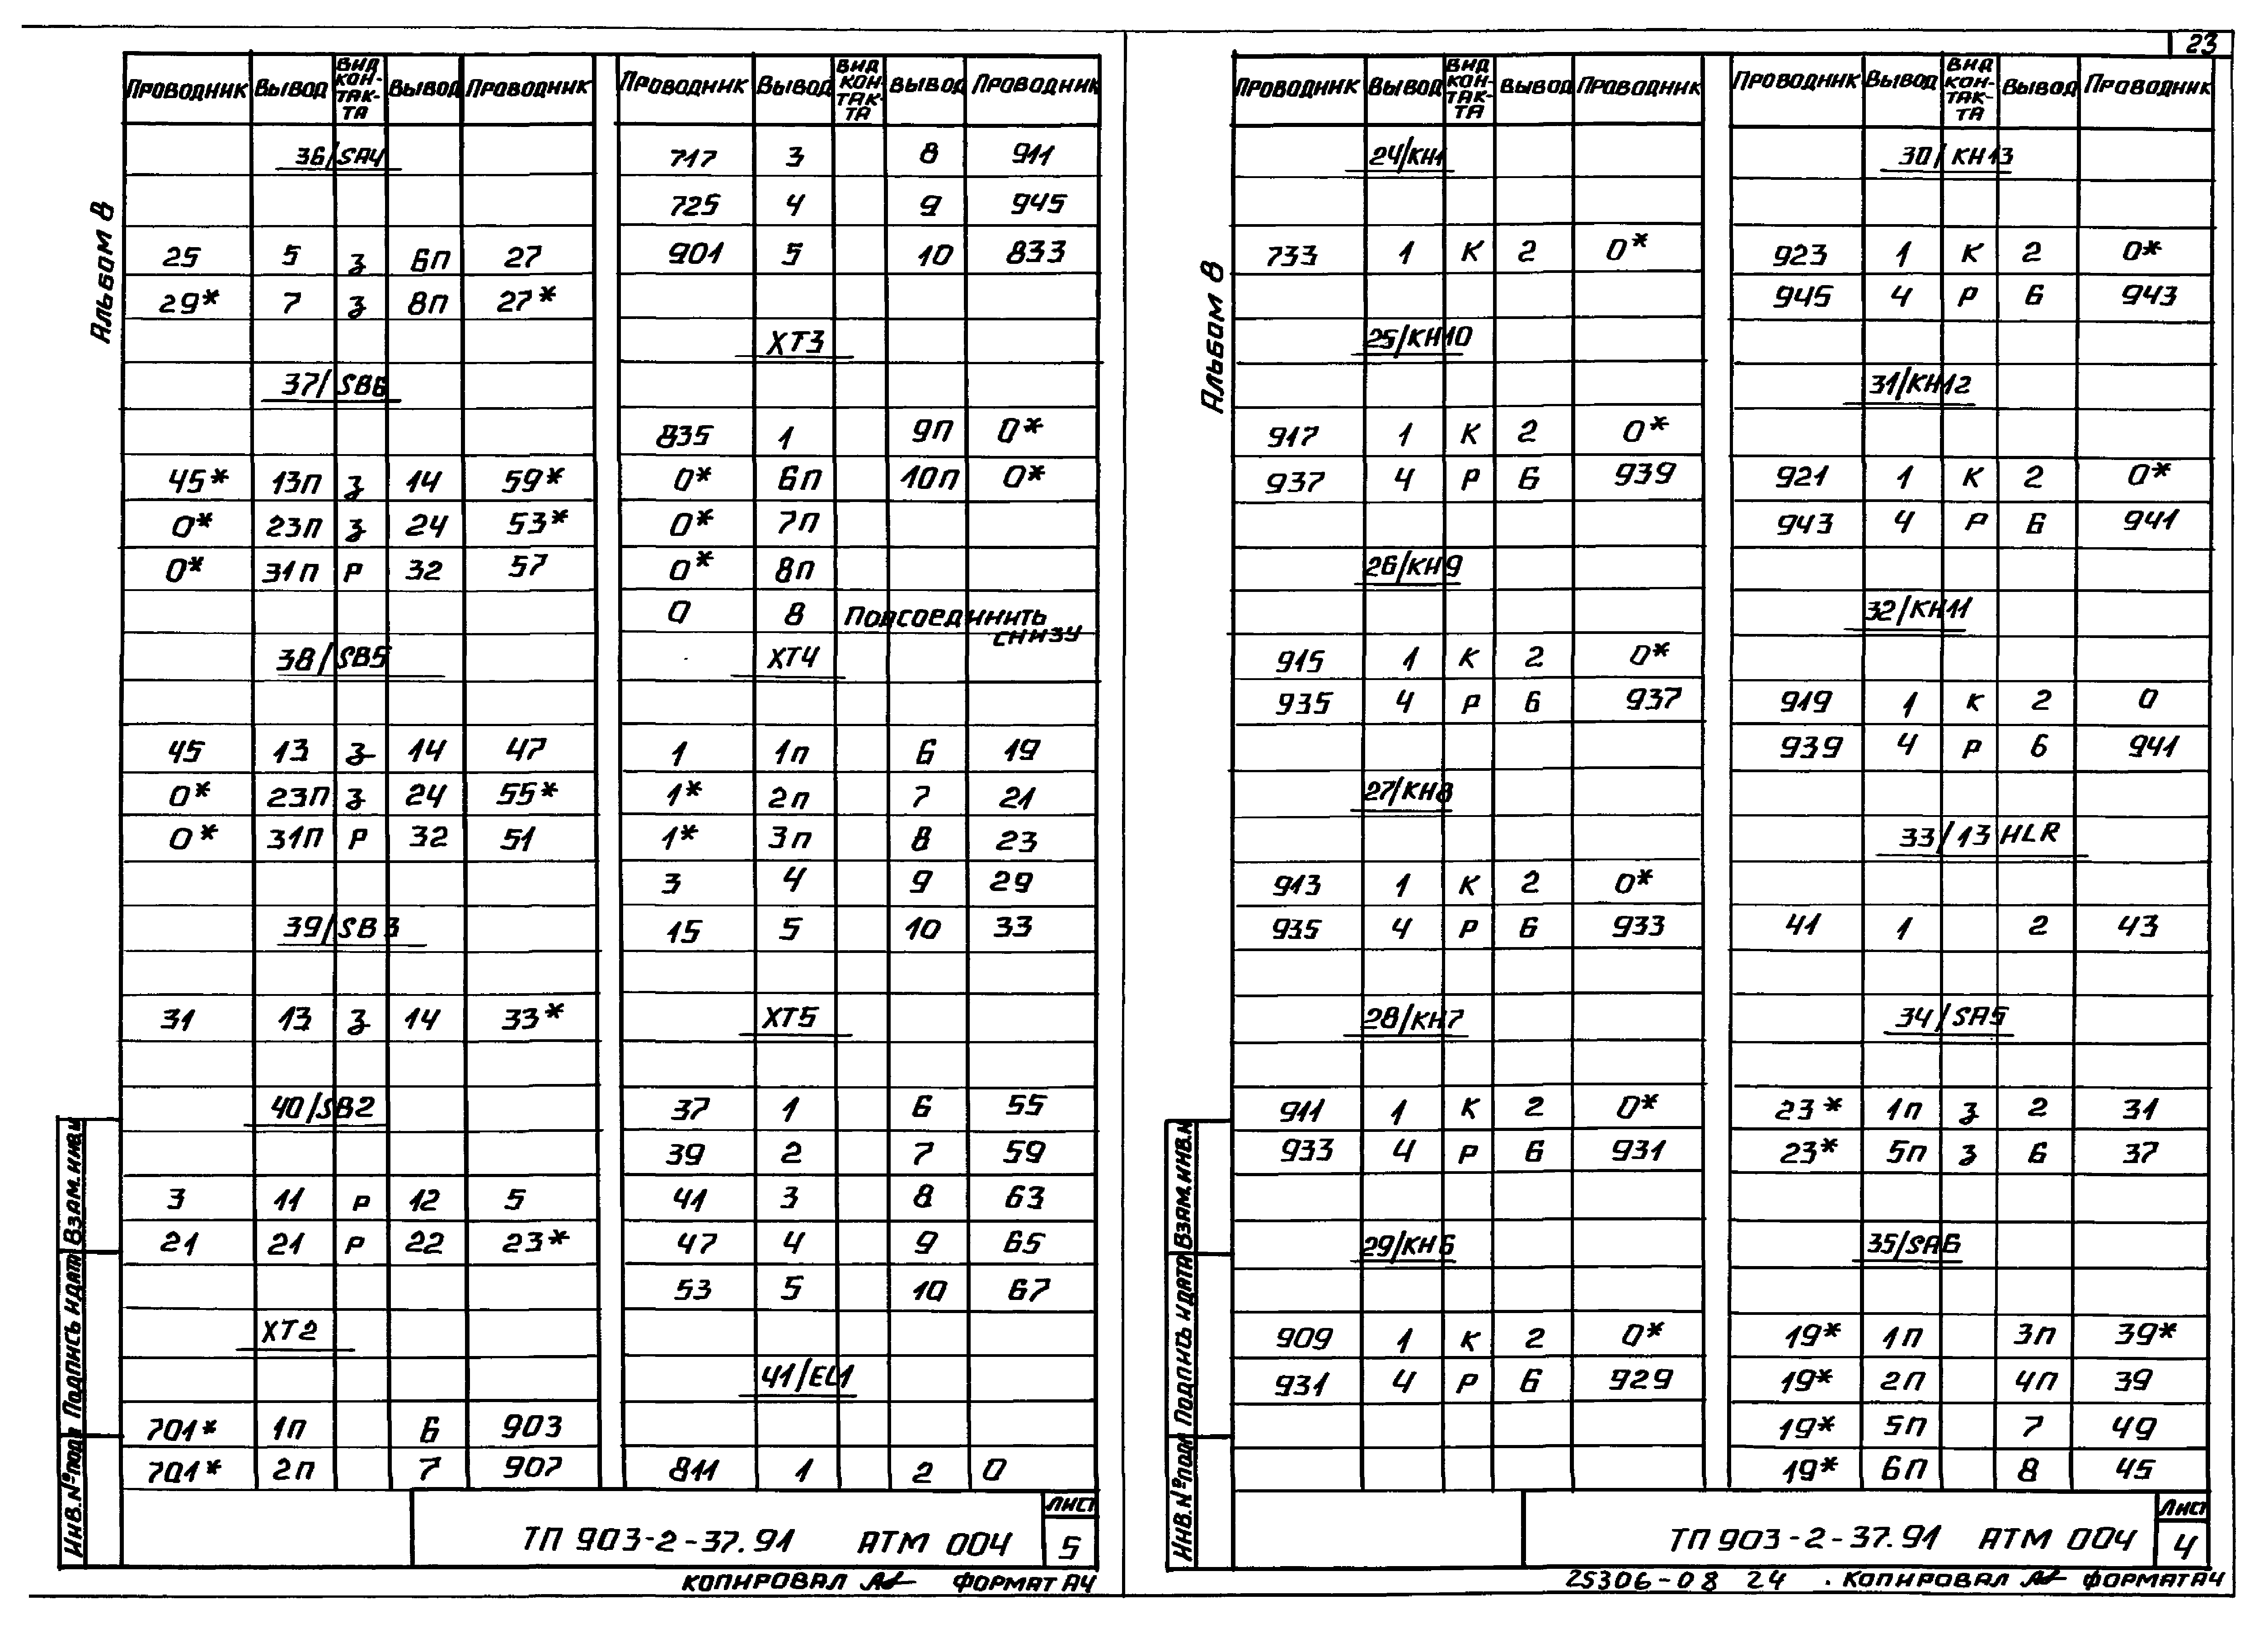 23
Альбом 8
Проводник Вывод Вид кон-так-та Вывод Проводник
36/SA4
25 5 з 6п 27
29* 7 з 8п 27*
37/SB6
45* 13п з 14 59*
0* 23п з 24 53*
0* 31п Р 32 57
38/SB5
45 13 з 14 47
0* 23п з 24 55*
0* 31п Р 32 51
39/SB3
31 13 з 14 33*
40/SB2
3 11 Р 12 5
21 21 Р 22 23*
XT2
701* 1п 6 903
701* 2п 7 907
Проводник Вывод Вид кон-так-та Вывод Проводник
717 3 8 911
725 4 9 945
901 5 10 833
XT3
835 1 9п 0*
0* 6п 10п 0*
0* 7п
0* 8п
0 8 Подсоединить
снизу
XT4
1 1п 6 19
1* 2п 7 21
1* 3п 8 23
3 4 9 29
15 5 10 33
XT5
37 1 6 55
39 2 7 59
41 3 8 63
47 4 9 65
53 5 10 67
41/EL1
811 1 2 0
Инв.№подл Подпись и дата Взам.инв.н
ТП 903-2-37.91 АТМ 004
Лист
5
Копировал Формат А4
Альбом 8
Проводник Вывод Вид кон-так-та Вывод Проводник
24/КН1
733 1 К 2 0*
25/КН10
917 1 К 2 0*
937 4 Р 6 939
26/КН9
915 1 К 2 0*
935 4 Р 6 937
27/КН8
913 1 К 2 0*
935 4 Р 6 933
28/КН7
911 1 К 2 0*
933 4 Р 6 931
29/КН6
909 1 К 2 0*
931 4 Р 6 929
Проводник Вывод Вид кон-так-та Вывод Проводник
30/КН13
923 1 К 2 0*
945 4 Р 6 943
31/КН12
921 1 К 2 0*
943 4 Р 6 941
32/КН11
919 1 К 2 0
939 4 Р 6 941
33/13HLR
41 1 2 43
34/SA5
23* 1п з 2 31
23* 5п з 6 37
35/SA6
19* 1п 3п 39*
19* 2п 4п 39
19* 5п 7 49
19* 6п 8 45
Инв.№подл Подпись и дата Взам.инв.н
ТП 903-2-37.91 АТМ 004
Лист
4
25306-08 24 Копировал Формат А4